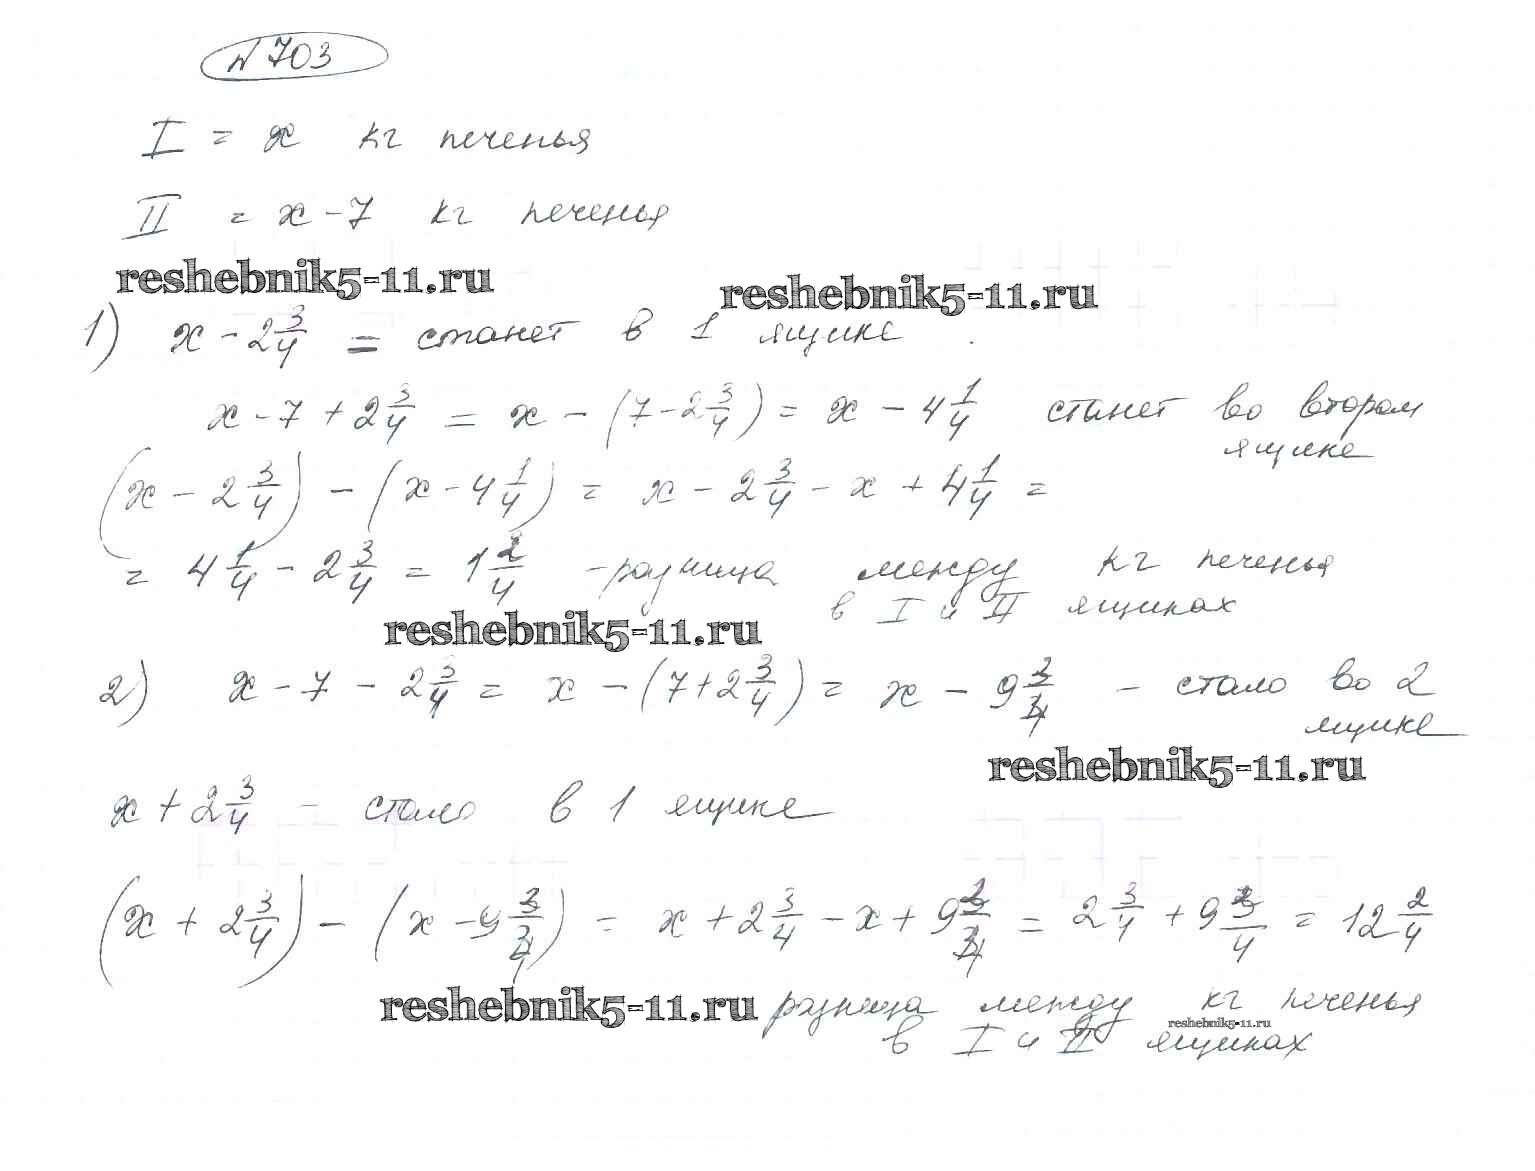 N 703
I = x кг печенья
II = x - 7 кг печенья
reshebnik5-11.ru
reshebnik5-11.ru
1) x - 2 3/4 = станет в 1 ящике.
x - 7 + 2 3/4 = x - (7 - 2 3/4) = x - 4 1/4 станет во втором
ящике
(x - 2 3/4) - (x - 4 1/4) = x - 2 3/4 - x + 4 1/4 =
= 4 1/4 - 2 3/4 = 1 2/4 - разница между кг печенья
в I и II ящиках
reshebnik5-11.ru
2) x - 7 - 2 3/4 = x - (7 + 2 3/4) = x - 9 3/4 - стало во 2
ящике
reshebnik5-11.ru
x + 2 3/4 - стало в 1 ящике
(x + 2 3/4) - (x - 9 3/4) = x + 2 3/4 - x + 9 3/4 = 2 3/4 + 9 3/4 = 12 2/4
reshebnik5-11.ru
разница между кг печенья
reshebnik5-11.ru
в I и II ящиках